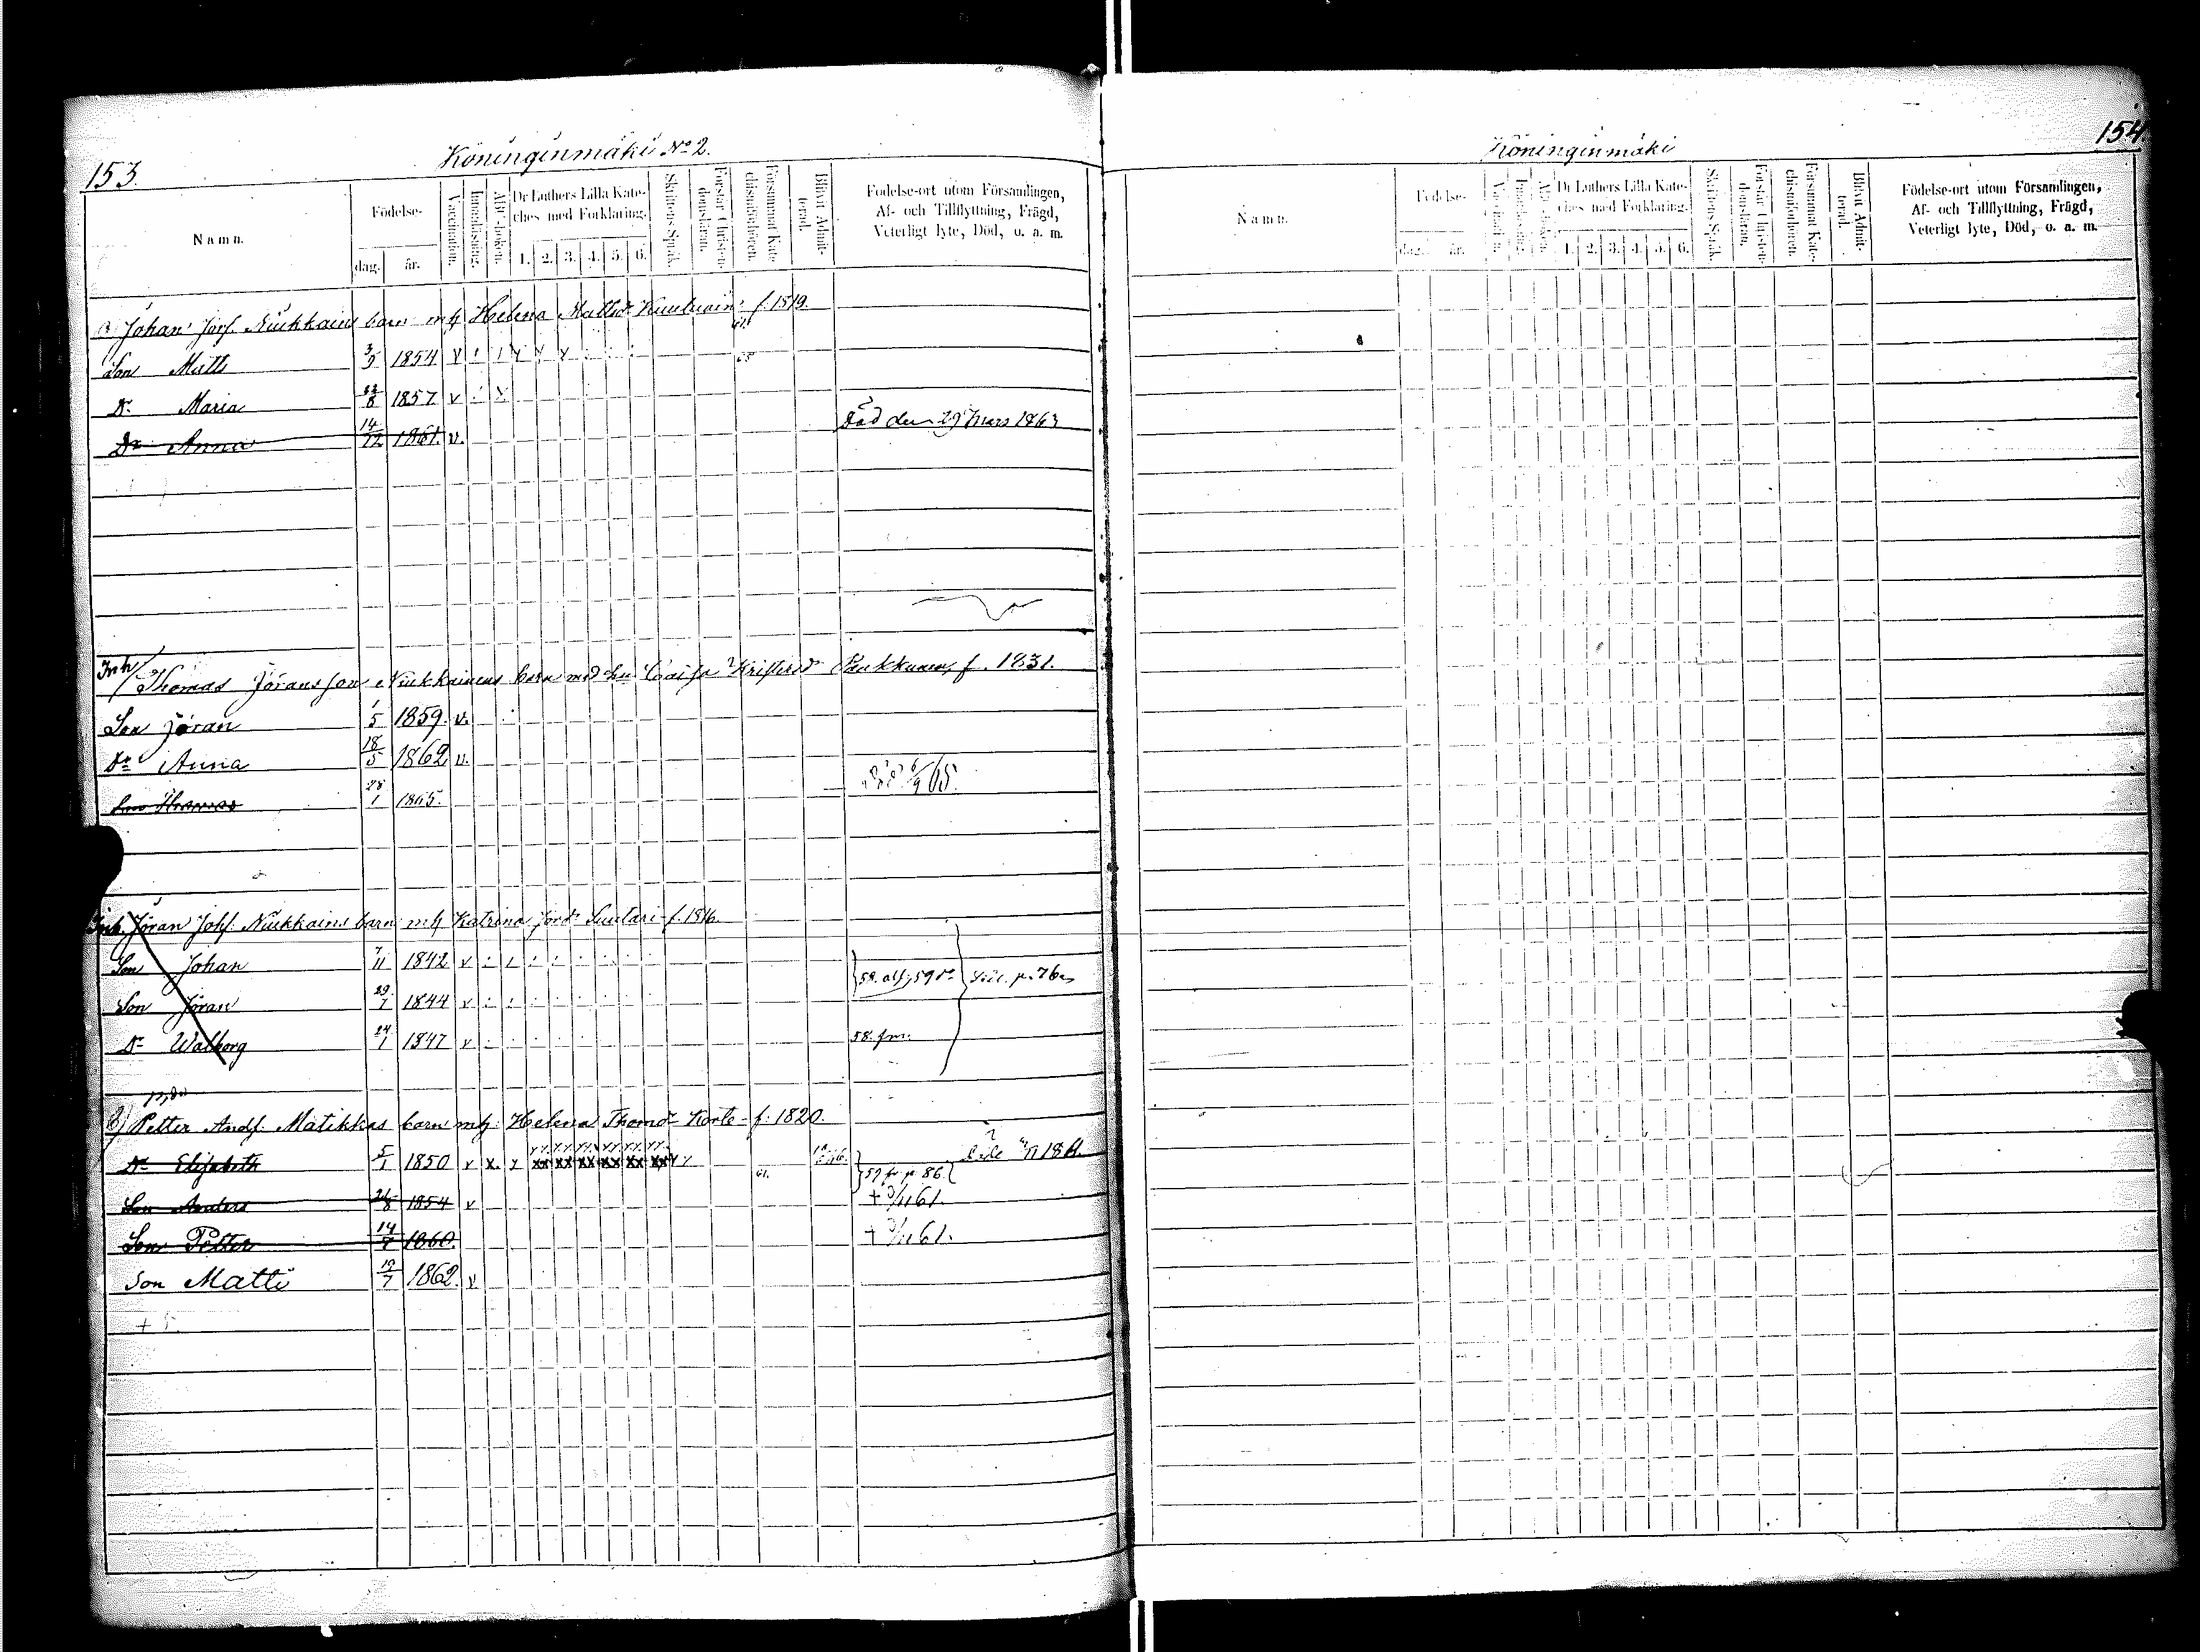 153.
Köninginmäki No 2.
Namn.
Födelse-
dag. år.
Vaccination.
Innanläsning.
ABC-boken.
Dr Luthers Lilla Kate-
ches med Förklaring.
1. 2. 3. 4. 5. 6.
Skriftens Språk.
Förstår Christen-
domsläran.
Försummat Kate-
chismiförhören.
Blifvit Admit-
terad.
Födelse-ort utom Församlingen,
Af- och Tillflyttning, Frägd,
Veterligt lyte, Död, o. a. m.
Johan Jörs. Niukkains barn mh Helena Mattsd f. 1819.
Son Matts 3/5 1854 v
Dr Maria 1857 v
Dr Anna 14/12 1861. v. Död den 29 Mars 1863
Inh/ Thomas Jöransson Niukkainens barn med hu Caisa Kristersd Paukkunen, f. 1831.
Son Jöran 1/5 1859. v.
Dr Anna 18/5 1862 v.
Son Thomas 28/1 1865.
Inh. Jöran Johs. Niukkains barn mh Katrina Jörsdr Suutari f. 1816.
Son Johan 7/11 1842 v
Son Jöran 29/1 1844 v
Dr Walborg 24/1 1847 v 58. frm.
Petter Ands. Matikkas barn mh. Helena Thomd Korte f. 1820.
Dr Elisabeth 5/1 1850 v x. 59 fr. p. 86.
Son Anders 1854 v + 3/11 61.
Son Petter 14/7 1860. + 3/11 61.
Son Matti 19/7 1862. v
154.
Köninginmäki
Namn.
Födelse-
dag. år.
Dr Luthers Lilla Kate-
ches med Förklaring.
1. 2. 3. 4. 5. 6.
Skriftens Språk.
Förstår Christen-
domsläran.
Försummat Kate-
chismiförhören.
Blifvit Admit-
terad.
Födelse-ort utom Församlingen,
Af- och Tillflyttning, Frägd,
Veterligt lyte, Död, o. a. m.